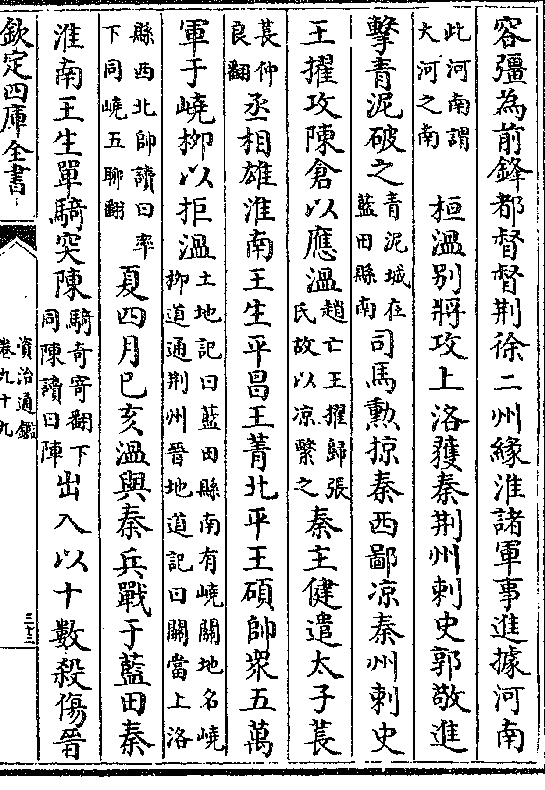 容彊為前鋒都督督荆徐二州緣淮諸軍事進據河南
此河南謂大河之南 桓溫别將攻上洛獲秦荆州刺史郭敬進
擊青泥破之 青泥城在藍田縣南 司馬勲掠秦西鄙凉秦州刺史
王擢攻陳倉以應溫 趙亡王擢歸張氏故以凉繫之 秦主健遣太子萇
萇仲良翻 丞相雄淮南王生平昌王菁北平王碩帥衆五萬
軍于嶢栁以拒溫 土地記曰藍田縣南有嶢關地名嶢栁道通荆州晉地道記曰關當上洛
縣西北帥讀曰率下同嶢五聊翻 夏四月己亥溫與秦兵戰于藍田秦
淮南王生單騎突陳 騎奇寄翻下同陳讀曰陣 出入以十數殺傷晉
欽定四庫全書
資治通鑑
卷九十九
三十三